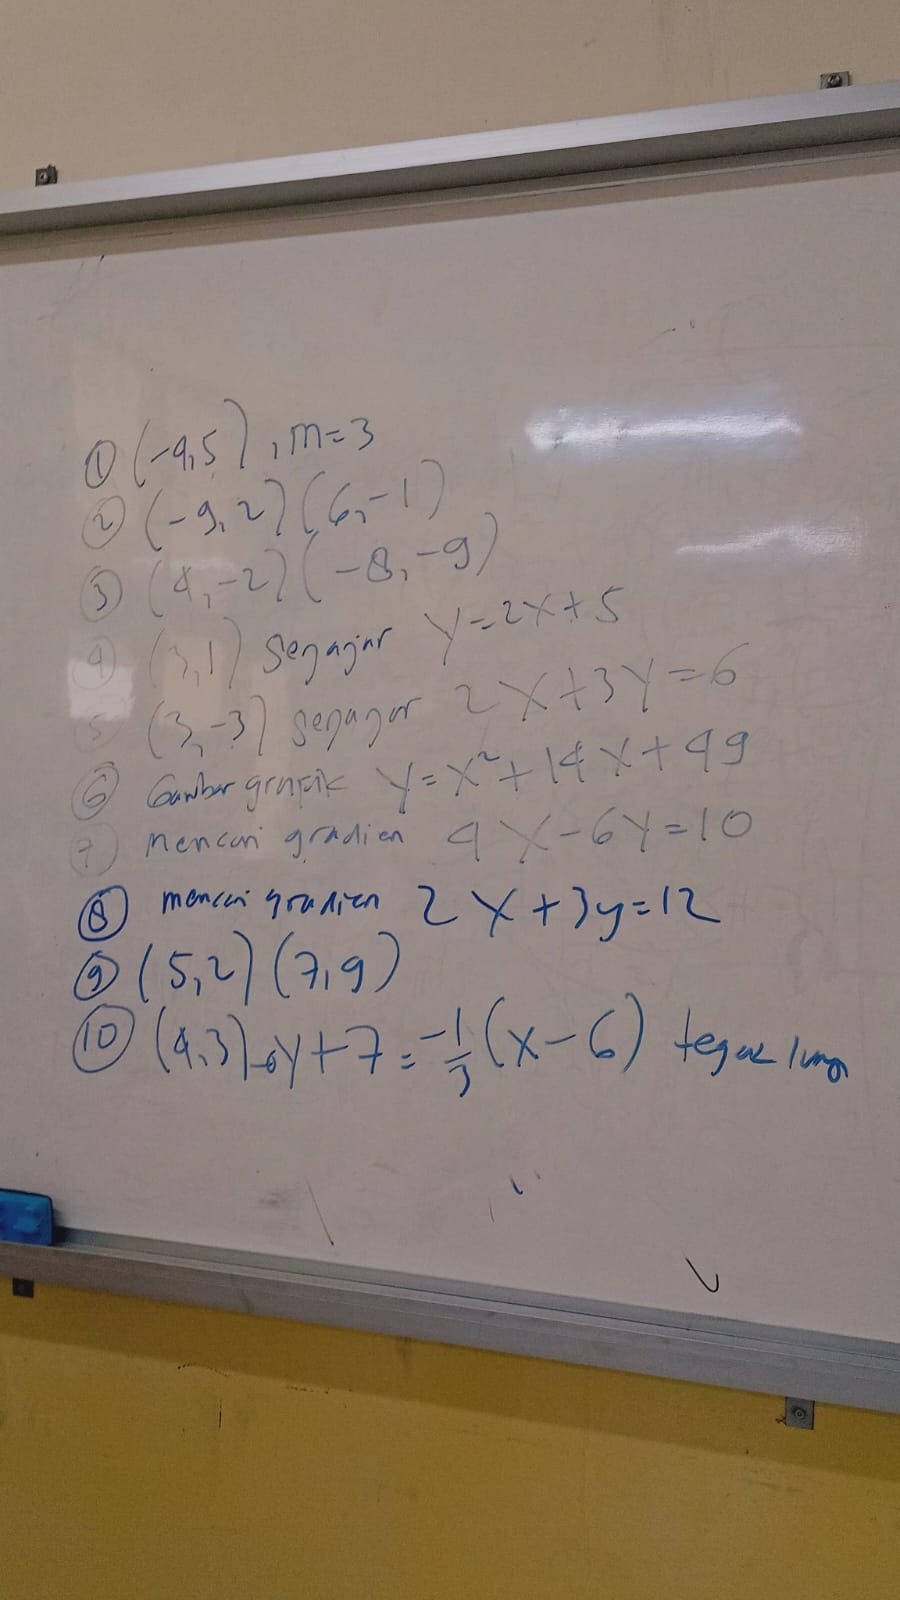 ① (-4,5), m=3
② (-9,2) (6,-1)
③ (4,-2) (-8,-9)
④ (3,1) sejajar y=2x+5
5 (3,-3) sejajar 2x+3y=6
⑥ Gambar grafik y=x²+14x+49
⑦ mencari gradien 4x-6y=10
⑧ mencari gradien 2x+3y=12
⑨ (5,2) (7,9)
⑩ (4,3) y+7=-1/3(x-6) tegak lurus